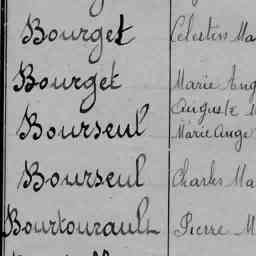 Bourget Célestin Ma
Bourget Marie Ang
Auguste M
Bourseul Marie Ange
Bourseul Charles Ma
Bourtourault Pierre M